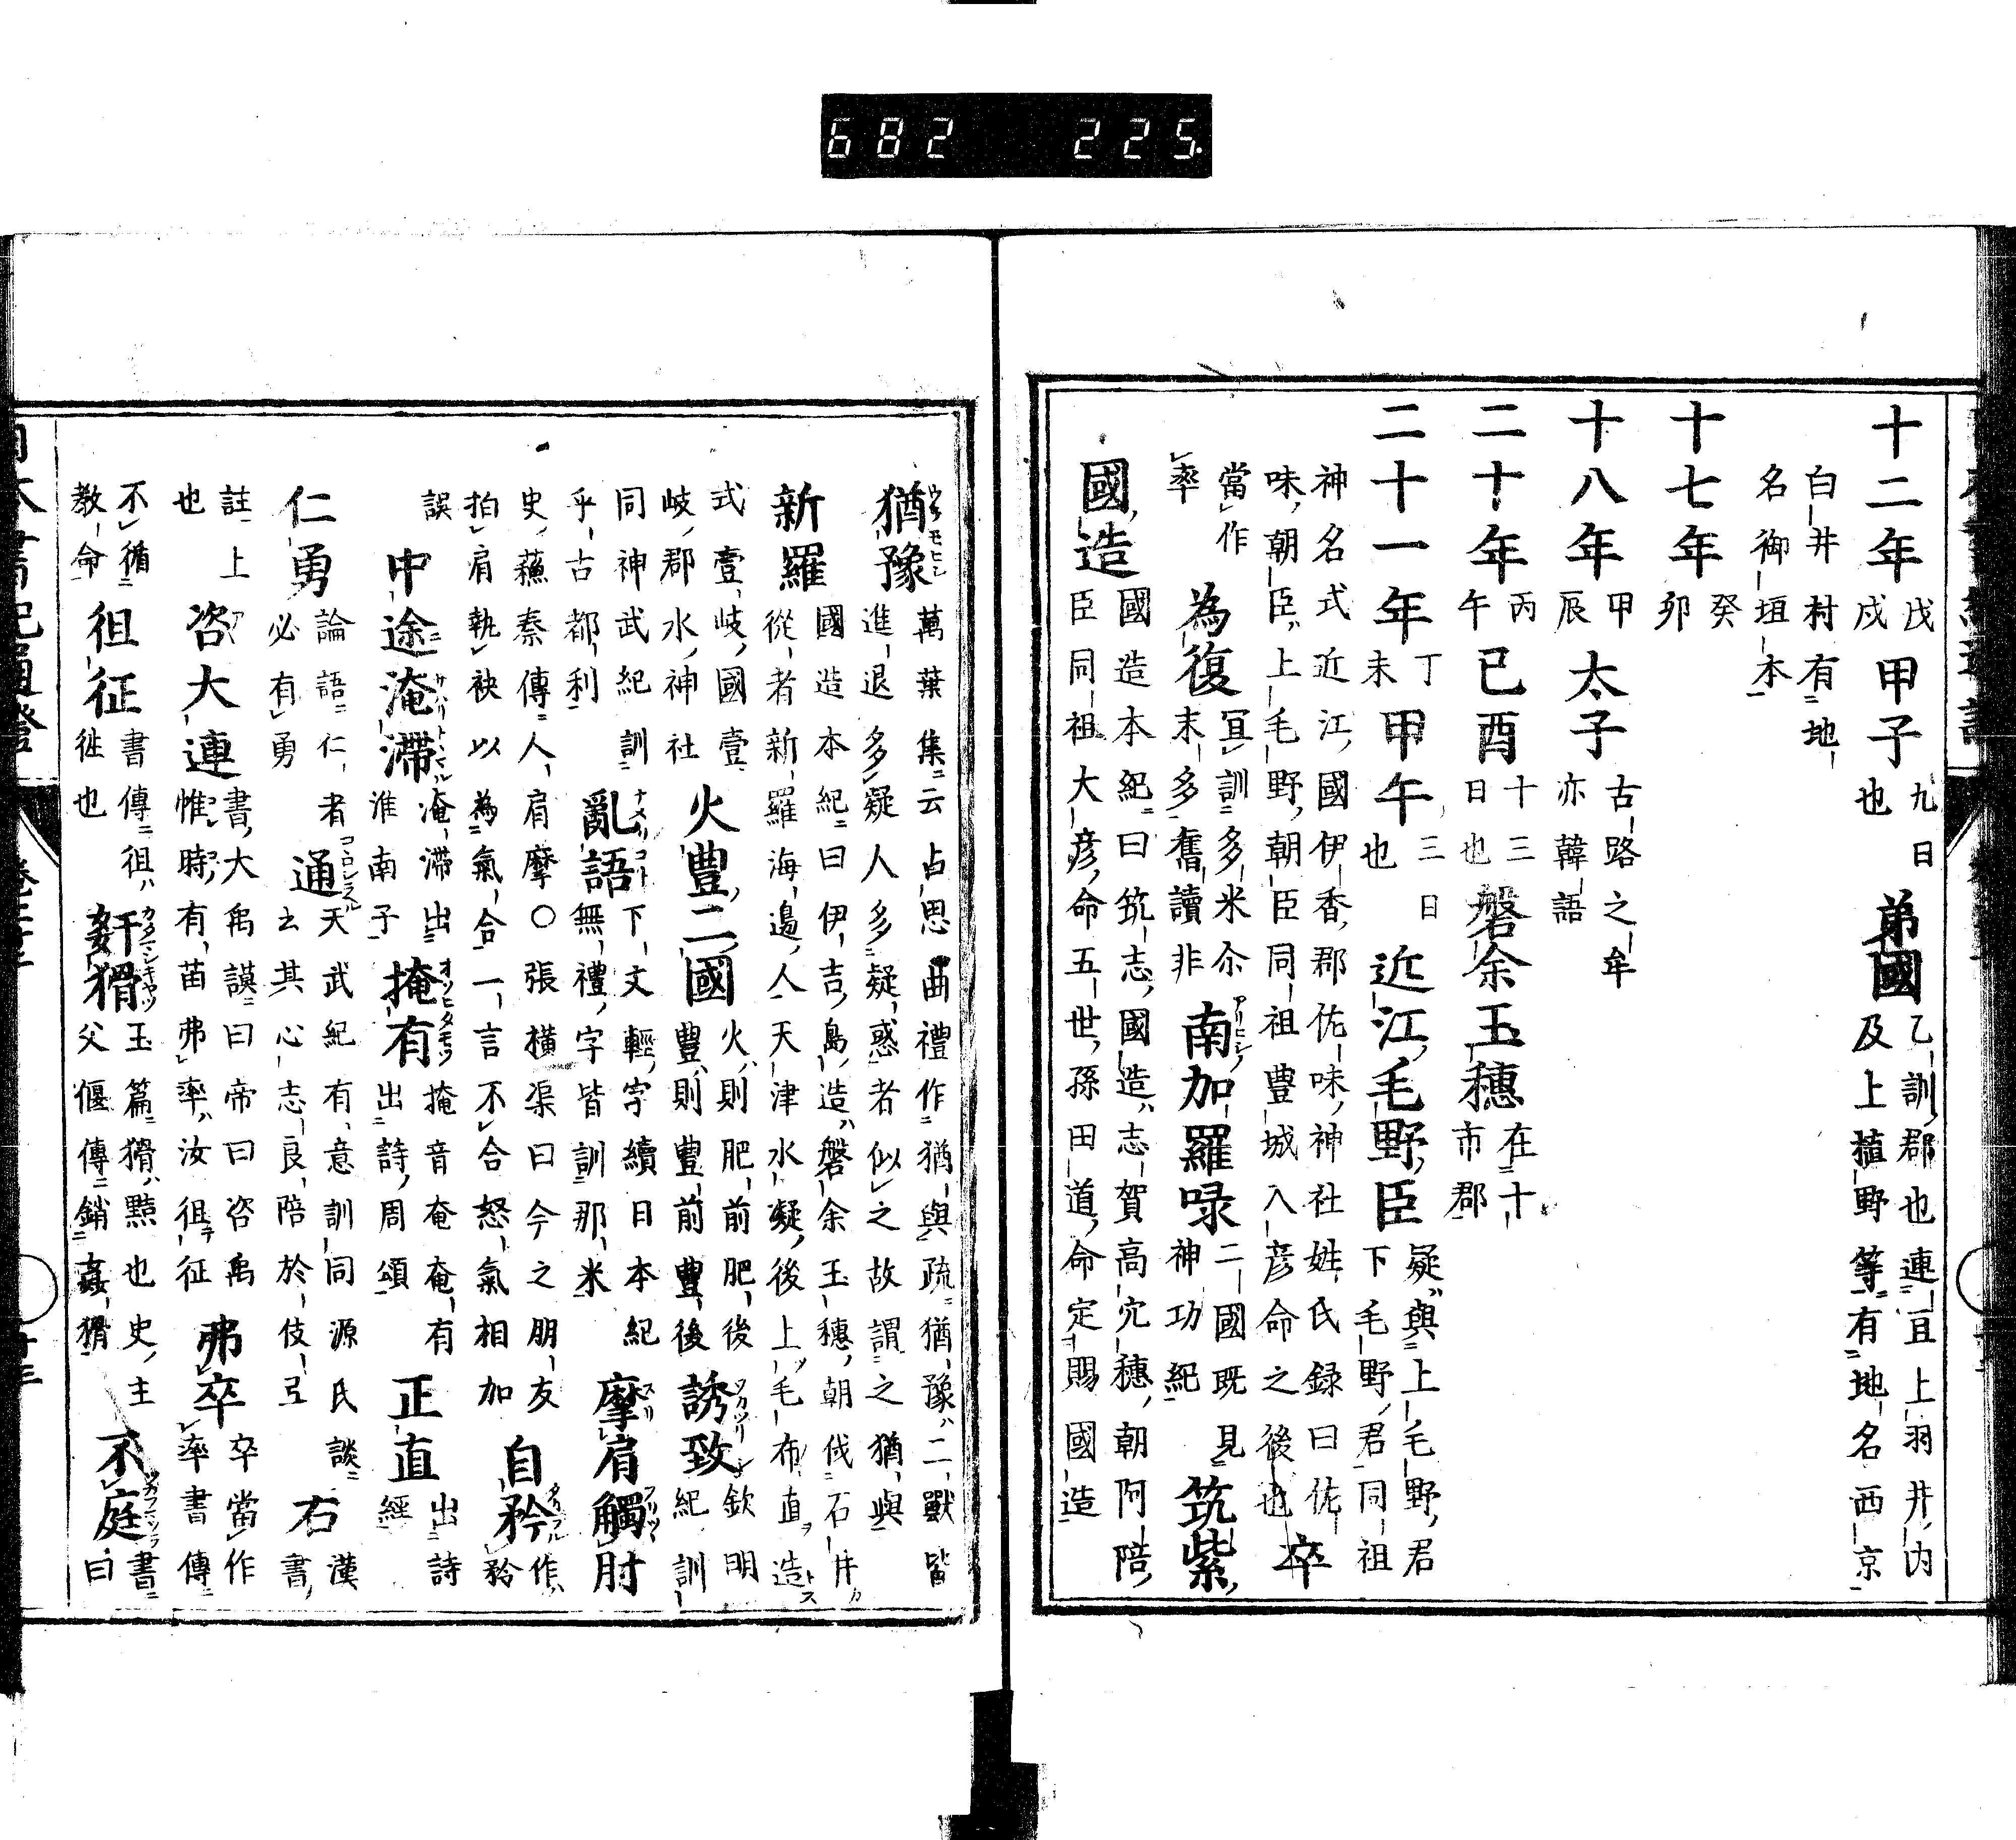 682 225
十二年戊戌甲子九日也弟國乙訓郡也連亘上羽井内及上植野等有地名西京
白井村有地名御垣本
十七年癸卯
十八年甲辰太子古路之牟亦韓語
二十年丙午己酉十三日也磐余玉穗在十市郡
二十一年丁未甲午三日也近江毛野臣疑與上毛野君下毛野君同祖
神名式近江國伊香郡佐味神社姓氏録曰佐味朝臣上毛野朝臣同祖豐城入彦命之後也卒
當作率為復冝訓多米尒末多舊讀非南加羅㖨二國既見神功紀筑紫
國造國造本紀曰筑志國造志賀高穴穗朝阿陪臣同祖大彦命五世孫田道命定賜國造
猶豫萬葉集云占思曲禮作猶與疏猶豫二獸皆進退多疑人多疑惑者似之故謂之猶與
新羅國造本紀曰伊吉島造磐余玉穗朝伐石井從者新羅海邊人天津水凝後上毛布直造
式壹岐國壹岐郡水神社火豐二國火則肥前肥後豐則豐前豐後誘致欽明紀訓
同神武紀訓乎古都利亂語下文輕字續日本紀無禮字皆訓那米摩肩觸肘
史蘓秦傳人肩摩〇張横渠曰今之朋友拍肩執袂以為氣合一言不合怒氣相加自矜作矜
誤中途淹滯淹滯出淮南子掩有掩音奄奄有出詩周頌正直出詩經
仁勇論語仁者必有勇通天武紀有意訓同源氏談云其心志良陪於伎弖右漢書
註上也咨大連書大禹謨曰帝曰咨禹惟時有苗弗率汝徂征弗卒卒當作率書傳
不循教命徂征書傳徂徃也奸猾玉篇猾黠也史主父偃傳銷姦猾不庭書曰
日本書紀通證